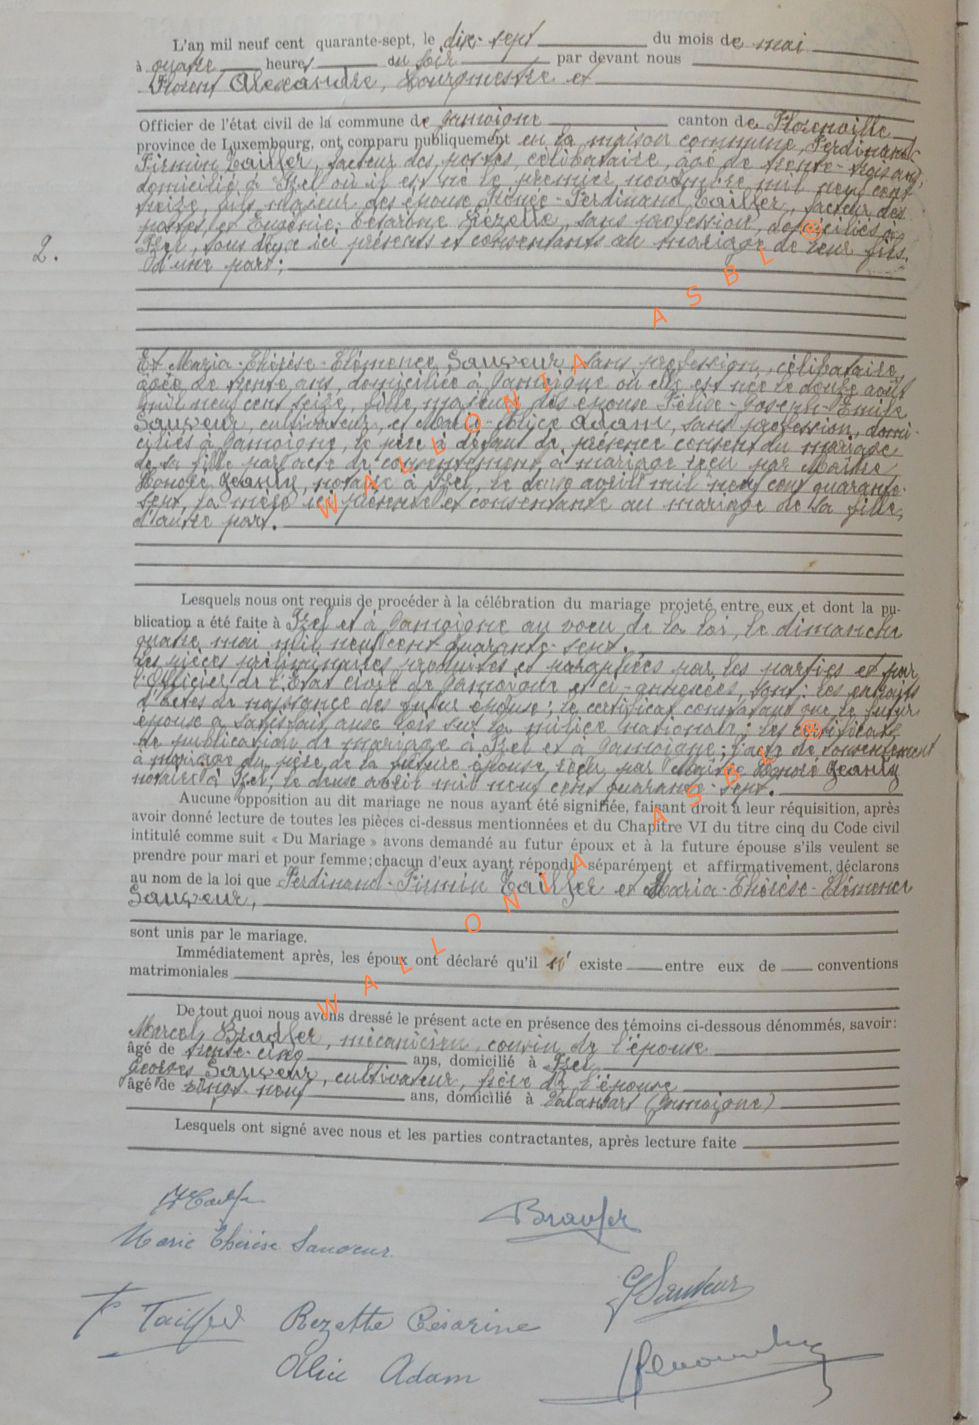 L'an mil neuf cent quarante-sept, le dix-sept du mois de mai
à quatre heures du soir par devant nous
Florent Alexandre, Bourgmestre et
Officier de l'état civil de la commune de Jamoigne canton de Florenville
province de Luxembourg, ont comparu publiquement en la maison commune, Ferdinand-
Firmin Tailfer, facteur des postes, célibataire, âgé de trente-trois ans,
domicilié à Izel où il est né le premier novembre mil neuf cent
treize, fils majeur des époux Ferdinand Tailfer, facteur des
postes, et Eugénie-Césarine Rézette, sans profession, domiciliés à
Izel, tous deux ici présents et consentants au mariage de leur fils,
d'une part;
2.
Et Maria-Thérèse-Clémence Sauveur, sans profession, célibataire,
âgée de trente ans, domiciliée à Jamoigne où elle est née le douze août
mil neuf cent seize, fille majeure des époux Félise-Joseph-Emile
Sauveur, cultivateur, et Marie-Alice Adam, sans profession, domi-
ciliés à Jamoigne, le père à défaut de présence consent au mariage
de sa fille par acte de consentement à mariage reçu par Maître
Honoré Jeanty, notaire à Izel, le douze avril mil neuf cent quarante-
sept, la mère ici présente et consentante au mariage de sa fille,
d'autre part.
Lesquels nous ont requis de procéder à la célébration du mariage projeté entre eux et dont la pu-
blication a été faite à Izel et à Jamoigne au voeu de la loi, le dimanche
quatre mai mil neuf cent quarante-sept.
Les pièces préliminaires produites et paraphées par les parties et par
l'Officier de l'Etat civil de Jamoigne et ci-annexées, sont: les extraits
d'actes de naissance des futurs époux; le certificat constatant que le futur
époux a satisfait aux lois sur la milice nationale; les certificats
de publication de mariage à Izel et à Jamoigne; l'acte de consentement
à mariage du père de la future épouse, reçu par Maître Honoré Jeanty
notaire à Izel, le douze avril mil neuf cent quarante-sept.
Aucune opposition au dit mariage ne nous ayant été signifiée, faisant droit à leur réquisition, après
avoir donné lecture de toutes les pièces ci-dessus mentionnées et du Chapitre VI du titre cinq du Code civil
intitulé comme suit « Du Mariage » avons demandé au futur époux et à la future épouse s'ils veulent se
prendre pour mari et pour femme; chacun d'eux ayant répondu séparément et affirmativement, déclarons
au nom de la loi que Ferdinand-Firmin Tailfer et Maria-Thérèse-Clémence
Sauveur,
sont unis par le mariage.
Immédiatement après, les époux ont déclaré qu'il n' existe entre eux de conventions
matrimoniales
De tout quoi nous avons dressé le présent acte en présence des témoins ci-dessous dénommés, savoir:
Marcel Braufer, mécanicien, cousin de l'épouse
âgé de trente-cinq ans, domicilié à Izel
Georges Sauveur, cultivateur, frère de l'épouse
âgé de vingt-neuf ans, domicilié à Valansart (Jamoigne)
Lesquels ont signé avec nous et les parties contractantes, après lecture faite
Braufer
Marie Thérèse Sauveur
G Sauveur
F Tailfer Rezette Césarine
Alice Adam
WALLONIA ASBL @
WALLONIA ASBL @